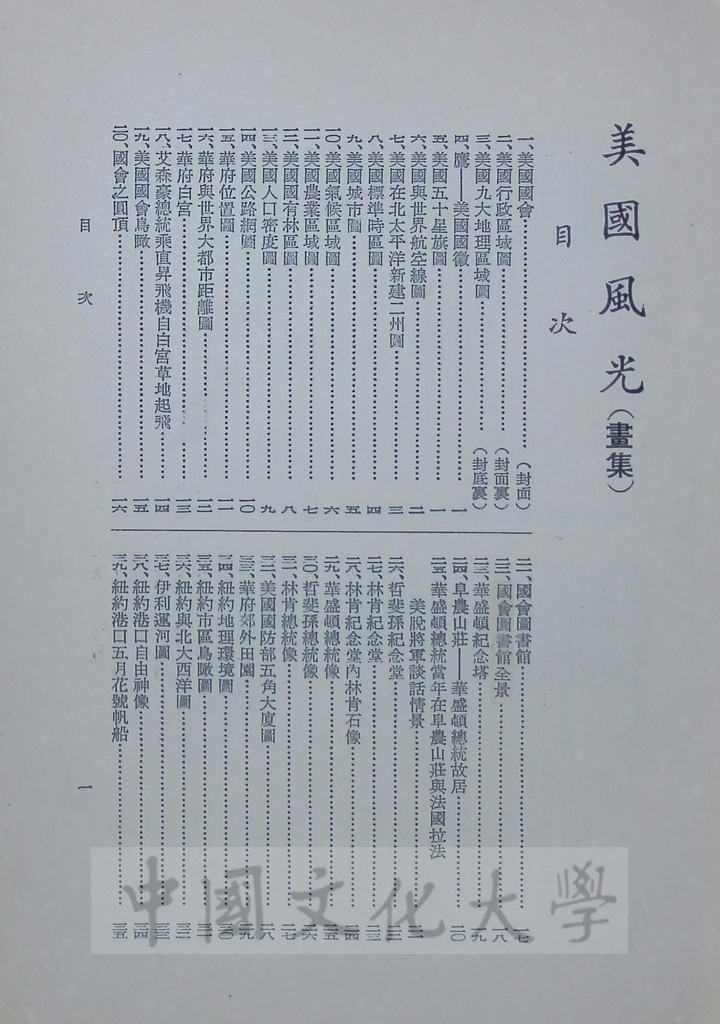 美國風光(畫集)
目次
一、美國國會……(封面)
二、美國行政區域圖……(封面裏)
三、美國九大地理區域圖……(封底裏)
四、鷹——美國國徽……一
五、美國五十星旗圖……一
六、美國與世界航空線圖……二
七、美國在北太平洋新建二州圖……三
八、美國標準時區圖……四
九、美國城市圖……五
一〇、美國氣候區域圖……六
一一、美國農業區域圖……七
一二、美國國有林區圖……八
一三、美國人口密度圖……九
一四、美國公路網圖……一〇
一五、華府位置圖……一一
一六、華府與世界大都市距離圖……一二
一七、華府白宮……一三
一八、艾森豪總統乘直昇飛機自白宮草地起飛……一四
一九、美國國會鳥瞰……一五
二〇、國會之圓頂……一六
二一、國會圖書館……一七
二二、國會圖書館全景……一八
二三、華盛頓紀念塔……一九
二四、阜農山莊——華盛頓總統故居……二〇
二五、華盛頓總統當年在阜農山莊與法國拉法
美脫將軍談話情景……二一
二六、哲斐孫紀念堂……二二
二七、林肯紀念堂……二三
二八、林肯紀念堂內林肯石像……二四
二九、華盛頓總統像……二五
三〇、哲斐孫總統像……二六
三一、林肯總統像……二七
三二、美國國防部五角大廈圖……二八
三三、華府郊外田園……二九
三四、紐約地理環境圖……三〇
三五、紐約市區鳥瞰圖……三一
三六、紐約與北大西洋圖……三二
三七、伊利運河圖……三三
三八、紐約港口自由神像……三四
三九、紐約港口五月花號帆船……三五
目次 一
中國文化大學